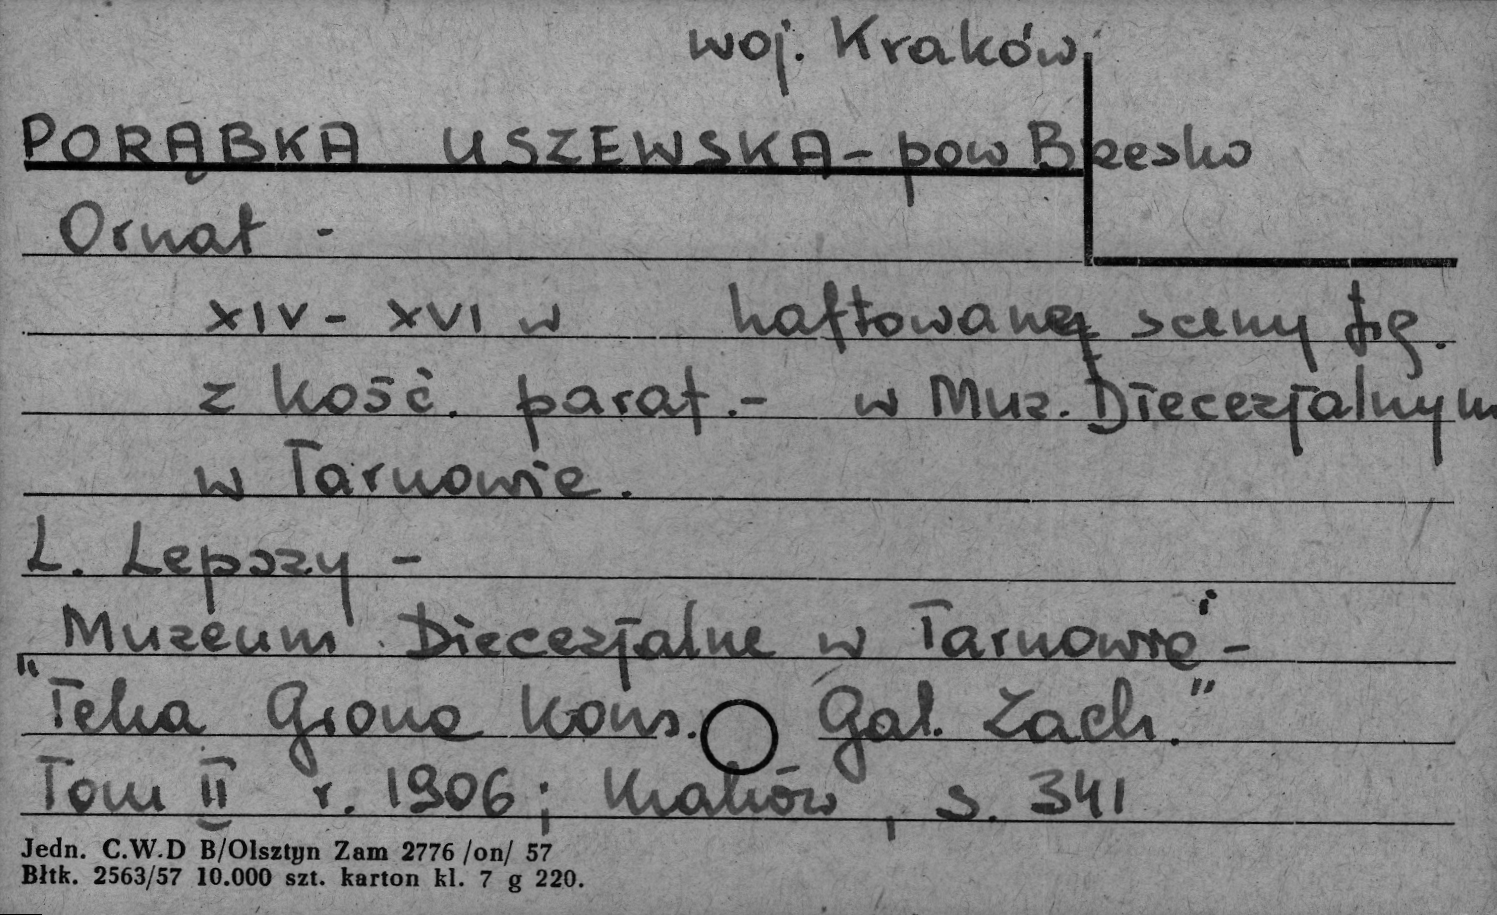 woj. Kraków
PORĄBKA USZEWSKA - pow Brzesko
Ornat -
XIV - XVI w haftowane sceny fig.
z kość. paraf. - w Muz. Diecezjalnym
w Tarnowie.
L. Lepszy -
Muzeum Diecezjalne w Tarnowie -
"Teka Grona Kons. Gal. Zach."
Tom II r. 1906; Kraków, s. 341
Jedn. C.W.D B/Olsztyn Zam 2776 /on/ 57
Błtk. 2563/57 10.000 szt. karton kl. 7 g 220.